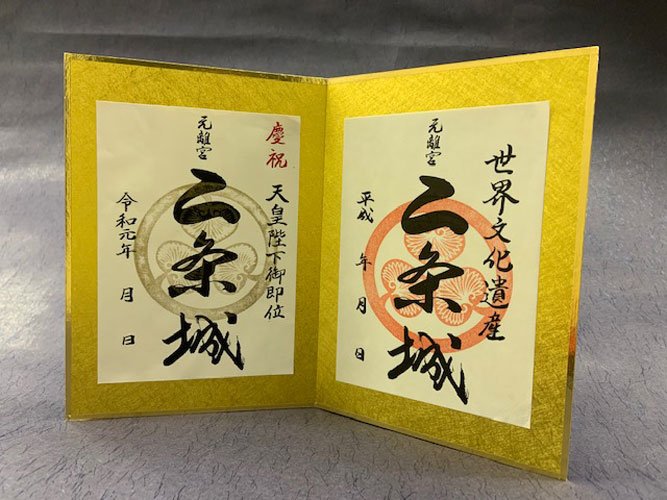 慶祝
天皇陛下御即位
元離宮
二条城
令和元年 月 日
世界文化遺産
元離宮
二条城
平成 年 月 日